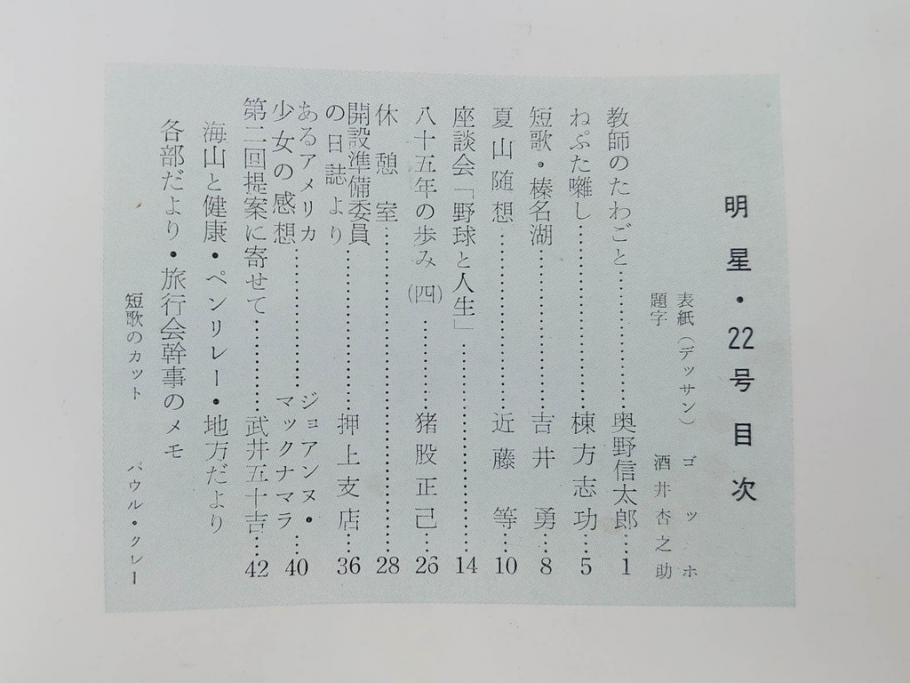 明星・22号 目次
表紙(デッサン) ゴッホ
題字 酒井杏之助
教師のたわごと……奥野信太郎…1
ねぷた囃し……棟方志功…5
短歌・榛名湖……吉井勇…8
夏山随想……近藤等…10
座談会「野球と人生」……14
八十五年の歩み(四)……猪股正己…26
休憩室……28
開設準備委員
の日誌より……押上支店…36
あるアメリカ
少女の感想……ジョアンヌ・
マックナマラ…40
第二回提案に寄せて……武井五十吉…42
海山と健康・ペンリレー・地方だより
各部だより・旅行会幹事のメモ
短歌のカット パウル・クレー